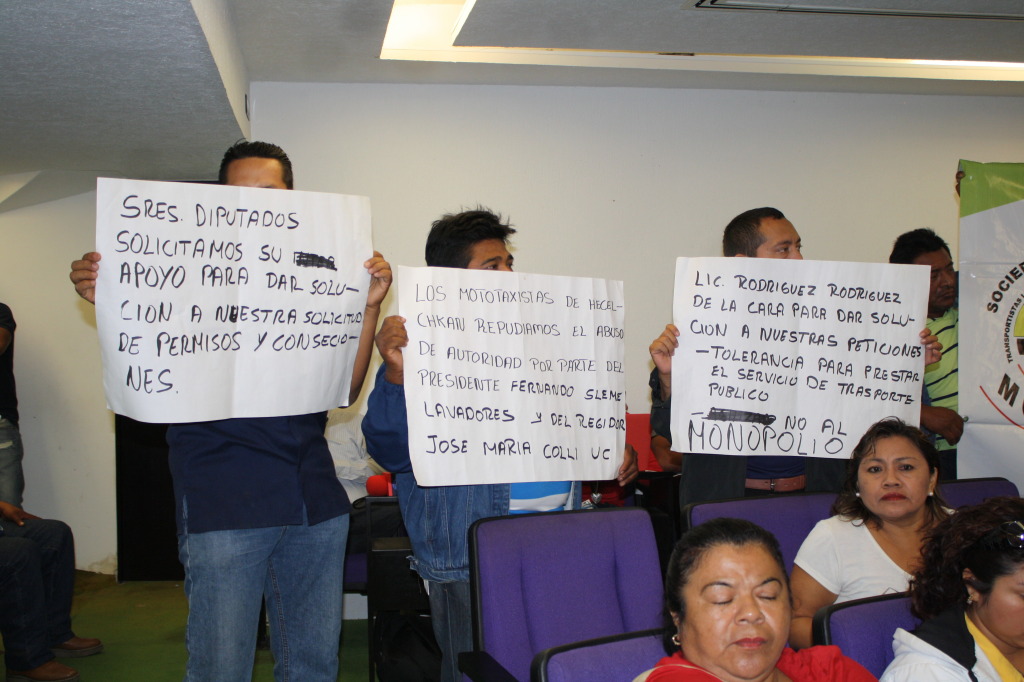 SRES. DIPUTADOS
SOLICITAMOS SU
APOYO PARA DAR SOLU-
CION A NUESTRA SOLICITUD
DE PERMISOS Y CONSECIO-
NES.
LOS MOTOTAXISTAS DE HECEL-
CHKAN REPUDIAMOS EL ABUSO
DE AUTORIDAD POR PARTE DEL
PRESIDENTE FERNANDO SLEME
LAVADORES Y DEL REGIDOR
JOSE MARIA COLLI UC
LIC. RODRIGUEZ RODRIGUEZ
DE LA CARA PARA DAR SOLU-
CION A NUESTRAS PETICIONES
-TOLERANCIA PARA PRESTAR
EL SERVICIO DE TRASPORTE
PUBLICO
- NO AL
MONOPOLIO
SOCIE
TRANSPORTISTAS